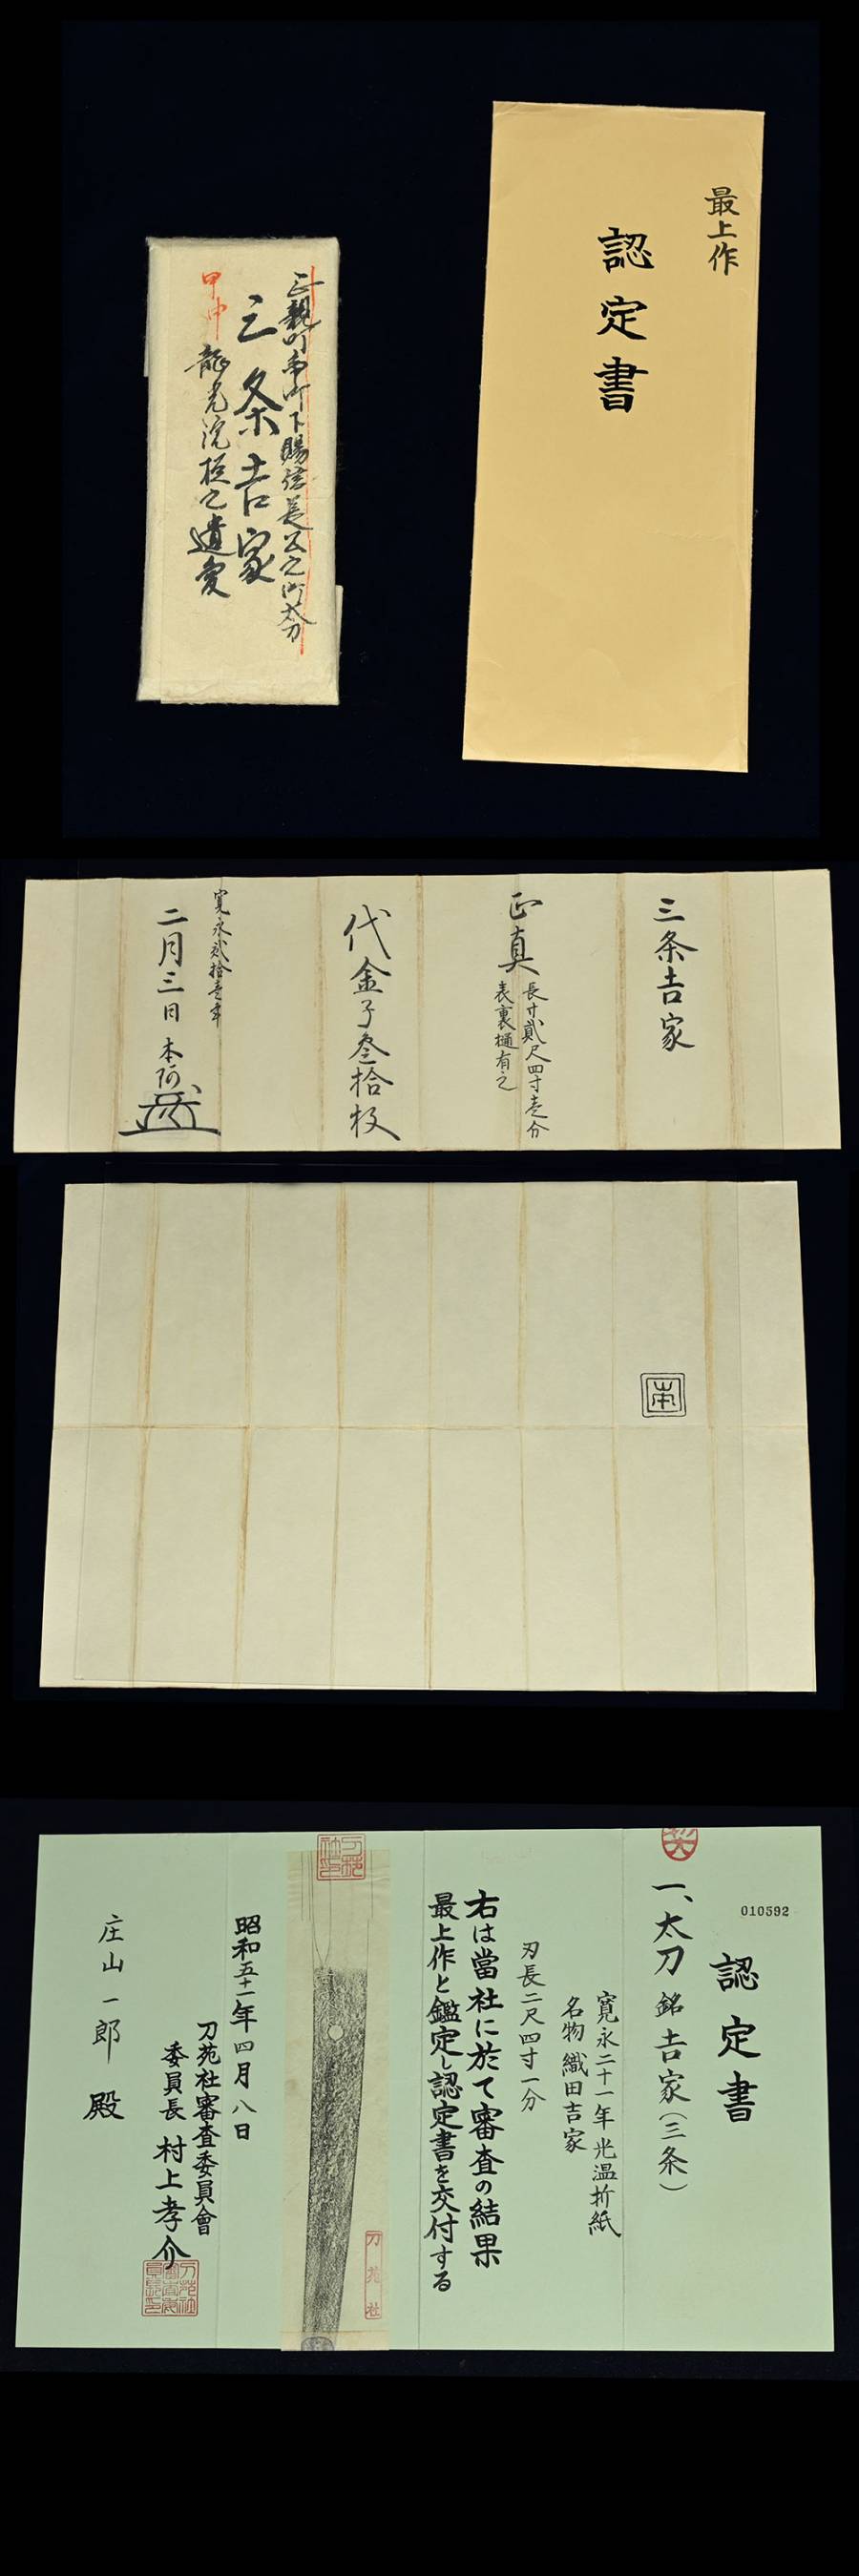 正親町帝ゟ下賜信長公之御太刀
三条吉家
甲申
龍光院様之遺愛
最上作
認定書
三条吉家
正真
長サ貳尺四寸壱分
表裏樋有之
代金子叄拾枚
寛永貳拾壱年
二月三日 本阿
本
010592
認定書
一、太刀 銘 吉家(三条)
寛永二十一年 光温折紙
名物 織田吉家
刃長二尺四寸一分
右は當社に於て審査の結果
最上作と鑑定し認定書を交付する
刀苑社
昭和五十一年四月八日
刀苑社審査委員會
委員長 村上孝介
庄山一郎 殿